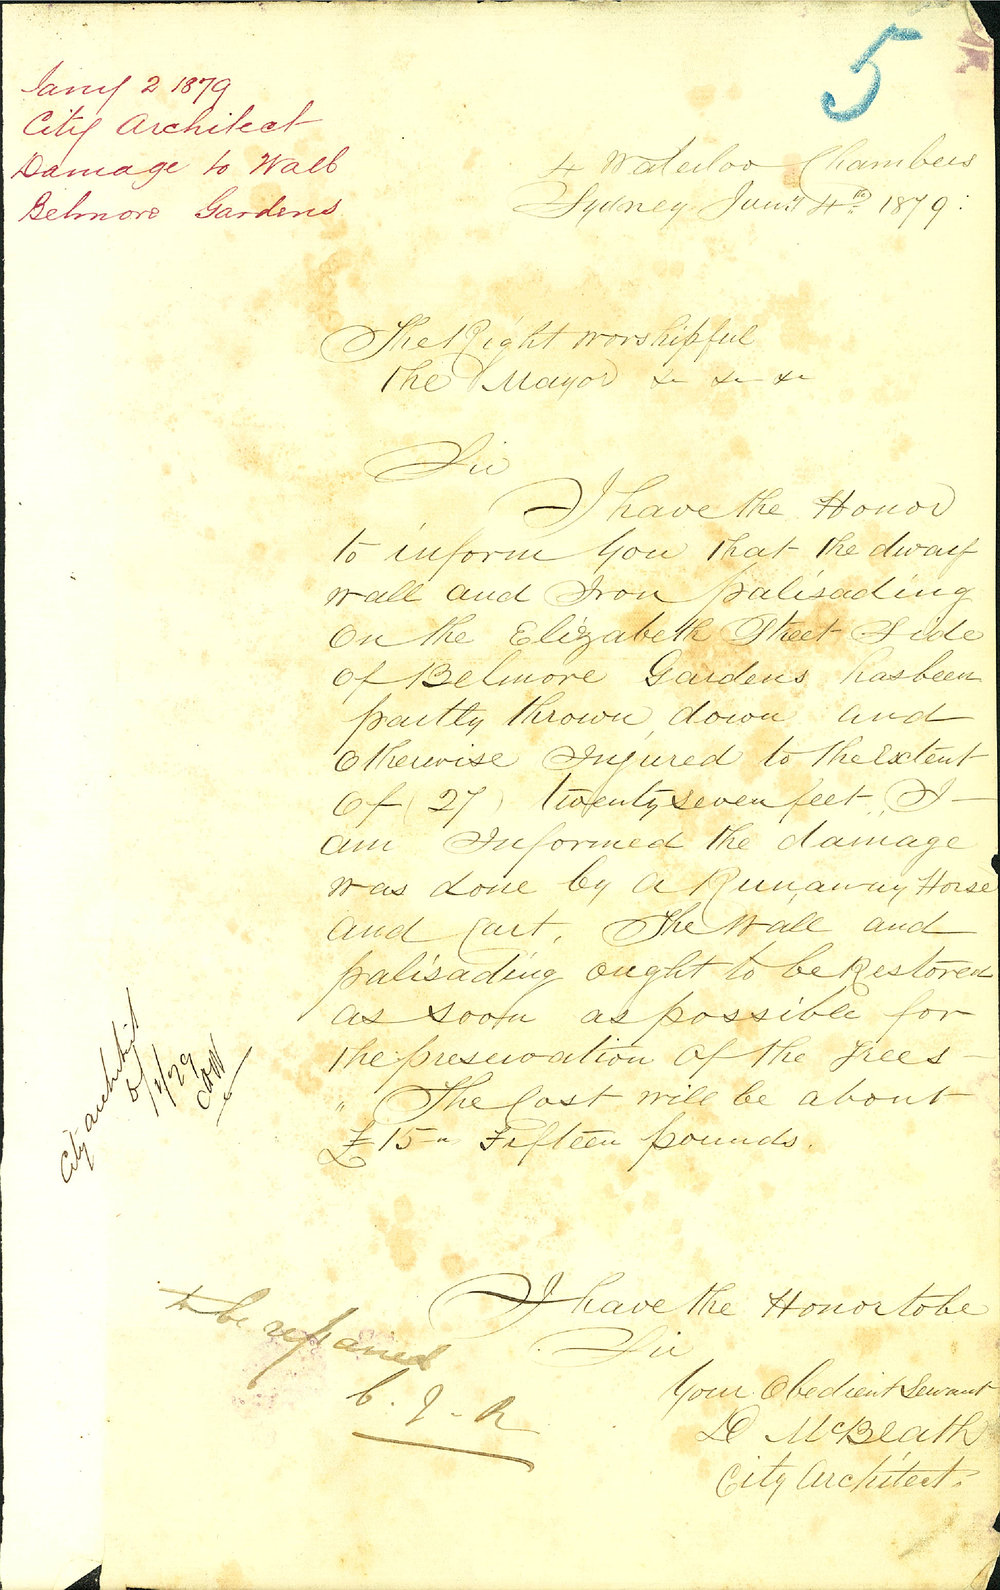 5
Jany 2 1879
City Architect
Damage to Wall
Belmore Gardens
4 Waterloo Chambers
Sydney Jany 4th 1879:
The Right Worshipful
the Mayor &c &c &c
Sir
I have the Honor
to inform You that the dwarf
wall and Iron palisading
On the Elizabeth Street Side
of Belmore Gardens has been
partly thrown down and
Otherwise Injured to the Extent
Of (27) twenty seven feet, I
am Informed the damage
was done by a Runaway Horse
and Cart. The Wall and
palisading ought to be Restored
as soon as possible for
the preservation Of the Trees -
" The Cost will be about
£15 " Fifteen pounds.
I have the Honor to be
Sir
Your Obedient Servant
D McBeath
City Architect.
City architect
to be repaired
C. J. R